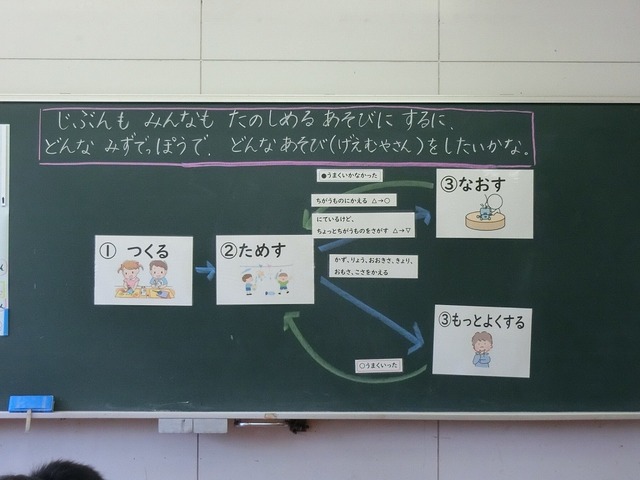 じぶんも みんなも たのしめる あそびに するに、
どんな みずでっぽうで、どんな あそび(げえむやさん)をしたいかな。
●うまくいかなかった
③なおす
ちがうものにかえる △→○
にているけど、
ちょっとちがうものをさがす △→▽
① つくる
②ためす
かず、りょう、おおきさ、きょり、
おもさ、こさをかえる
③もっとよくする
○うまくいった